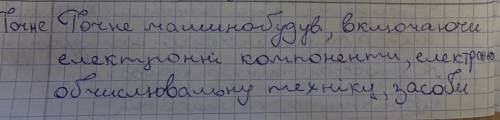 Точне Точне машинобудув, включаючи
електронні компоненти, електронно
обчислювальну техніку, засоби